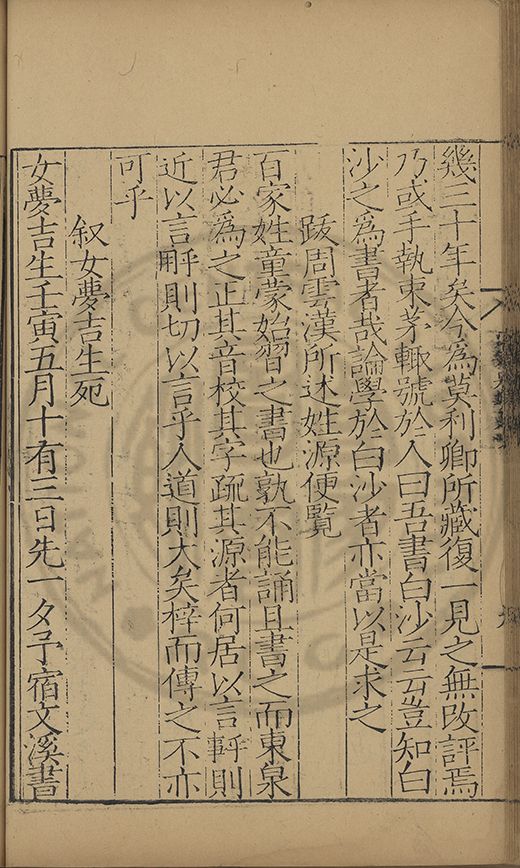 幾三十年矣今為莫利卿所藏復一見之無改評焉
乃或手執束茅輙號於人曰吾書白沙云云豈知白
沙之為書者哉論學於白沙者亦當以是求之
跋周雲漢所述姓源便覽
百家姓童蒙始習之書也孰不能誦且書之而東泉
君必為之正其音校其字疏其源者何居以言乎則
近以言乎則切以言乎人道則大矣梓而傳之不亦
可乎
叙女夢吉生死
女夢吉生壬寅五月十有三日先一夕予宿文溪書